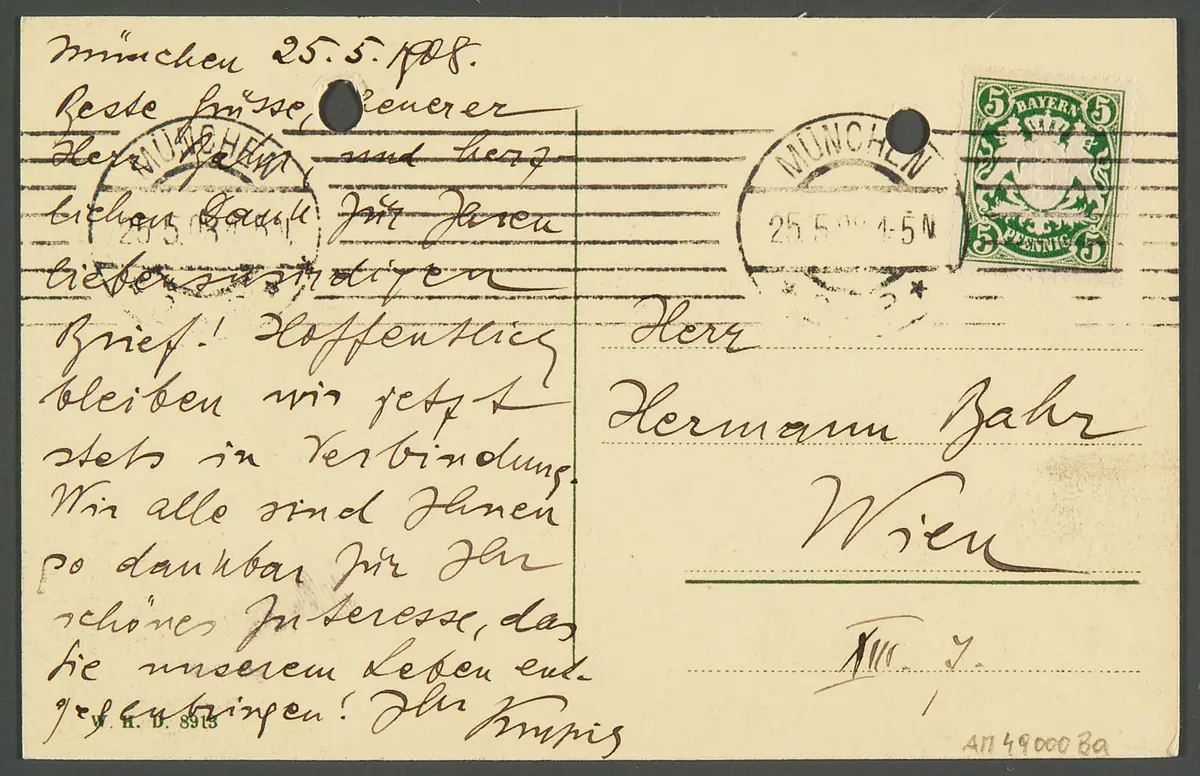 München 25. 5. 1908.
Beste Grüsse, teuerer
Herr Bahr, und herz-
lichen Dank für Ihren
liebenswürdigen
Brief! Hoffentlich
bleiben wir jetzt
stets in Verbindung.
Wir alle sind Ihnen
so dankbar für Ihr
schönes Interesse, das
Sie unserem Leben ent-
gegenbringen! Ihr
W. H. D. 8913
MÜNCHEN
25.5.08 4-5 N
MÜNCHEN
25.5.08 4-5 N
5 BAYERN 5
5 PFENNIG 5
Herr
Hermann Bahr
Wien
XIII. 7.
AM 49000 Ba